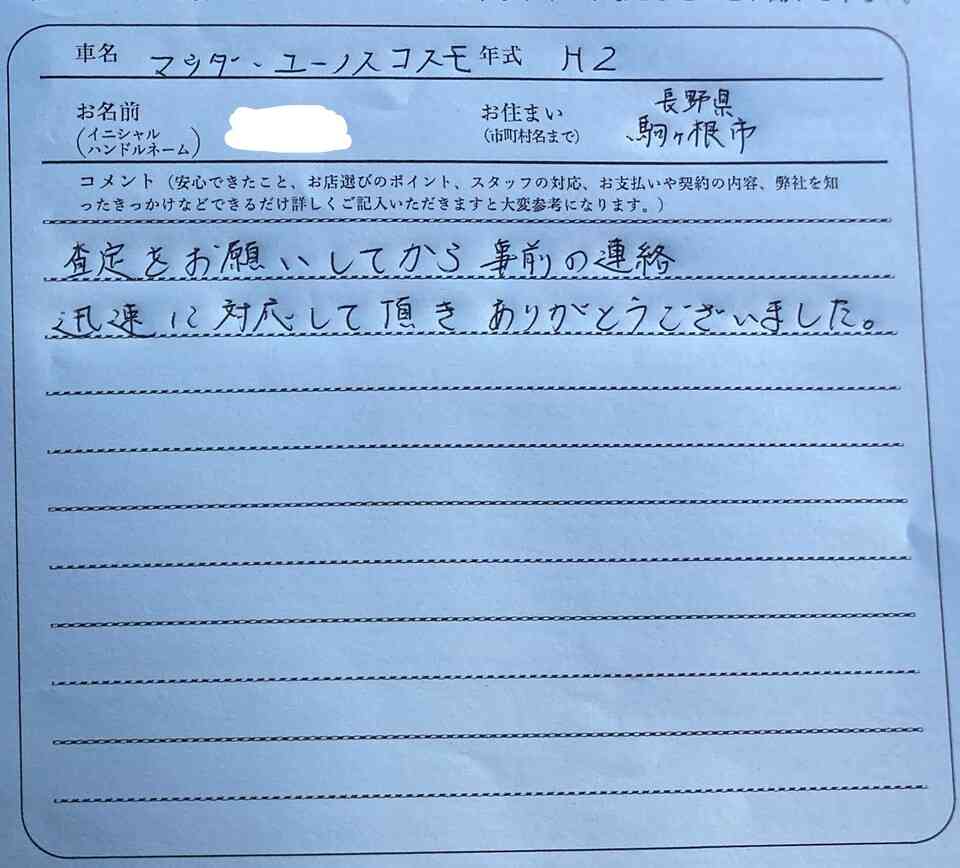 車名 マツダ・ユーノスコスモ 年式 H2
お名前 お住まい 長野県
(イニシャル (市町村名まで) 駒ヶ根市
ハンドルネーム)
コメント(安心できたこと、お店選びのポイント、スタッフの対応、お支払いや契約の内容、弊社を知
ったきっかけなどできるだけ詳しくご記入いただきますと大変参考になります。)
査定をお願いしてから事前の連絡
迅速に対応して頂きありがとうございました。